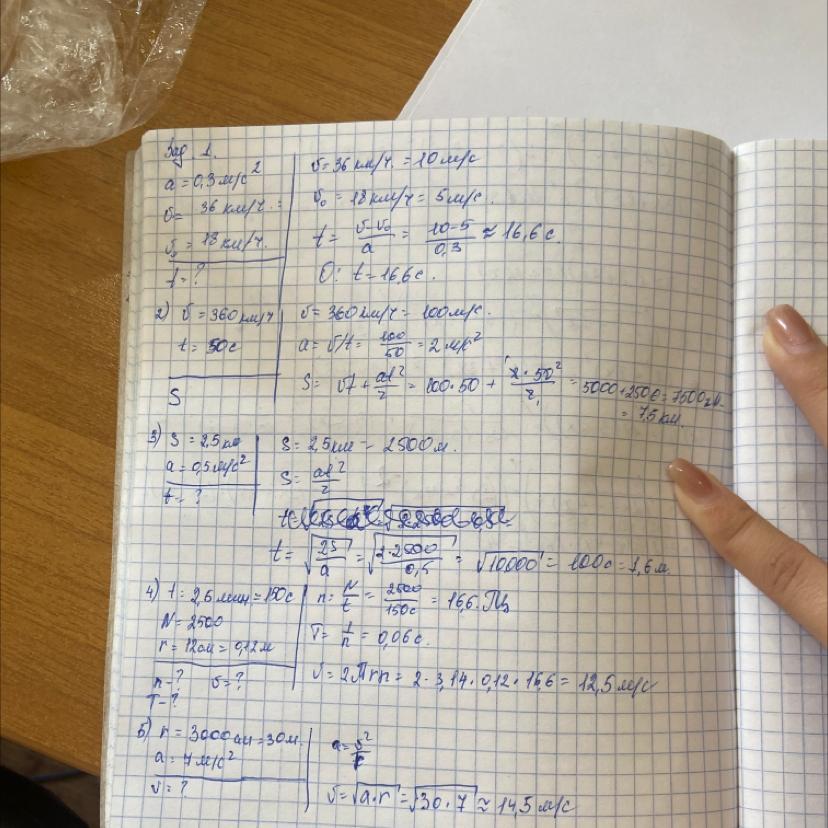 Зад. 1.
a = 0,3 м/с²
v = 36 км/ч.
v₀ = 18 км/ч.
t = ?
v = 36 км/ч. = 10 м/с
v₀ = 18 км/ч = 5 м/с.
t = (v - v₀)/a = (10 - 5)/0,3 ≈ 16,6 с.
О: t = 16,6 с.
2) v = 360 км/ч
t = 50 с
S
v = 360 км/ч = 100 м/с.
a = v/t = 100/50 = 2 м/с²
S = vt + at²/2 = 100·50 + 2·50²/2 = 5000 + 2500 = 7500 м
= 7,5 км.
3) S = 2,5 км
a = 0,5 м/с²
t = ?
S = 2,5 км = 2500 м.
S = at²/2
t = √(2S/a) = √(2·2500/0,5) = √10000 = 100 с = 1,6 м.
4) t = 2,6 мин = 150 с
N = 2500
r = 12 см = 0,12 м
n = ? v = ?
T = ?
n = N/t = 2500/150с = 16,6 Гц
T = 1/n = 0,06 с.
v = 2Пrn = 2·3,14·0,12·16,6 = 12,5 м/с
5) r = 3000 см = 30 м.
a = 7 м/с²
v = ?
a = v²/r
v = √(a·r) = √(30·7) ≈ 14,5 м/с